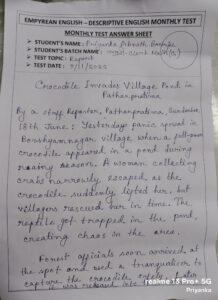 EMPYREAN ENGLISH – DESCRIPTIVE ENGLISH MONTHLY TEST
MONTHLY TEST ANSWER SHEET
➤ STUDENT'S NAME : Priyanka Debnath
➤ STUDENT'S BATCH NAME :
➤ TEST TOPIC : Report
➤ TEST DATE : 9/11/2025
Crocodile Invades Village Pond in
Patharpratima
By a staff Reporter, Patharpratima, Sundarban,
18th June : Yesterday panic spread in
village when a full-grown
crocodile appeared in a pond during
rainy season. A woman collecting
crabs narrowly escaped as the
crocodile suddenly her, but
villagers rescued her in time. The
reptile got trapped in the pond,
creating chaos in the area.
Forest officials soon arrived at
the spot and used a tranquilizer to
capture the crocodile safely. Later
it was released into the
realme 13 Pro+ 5G
Priyanka